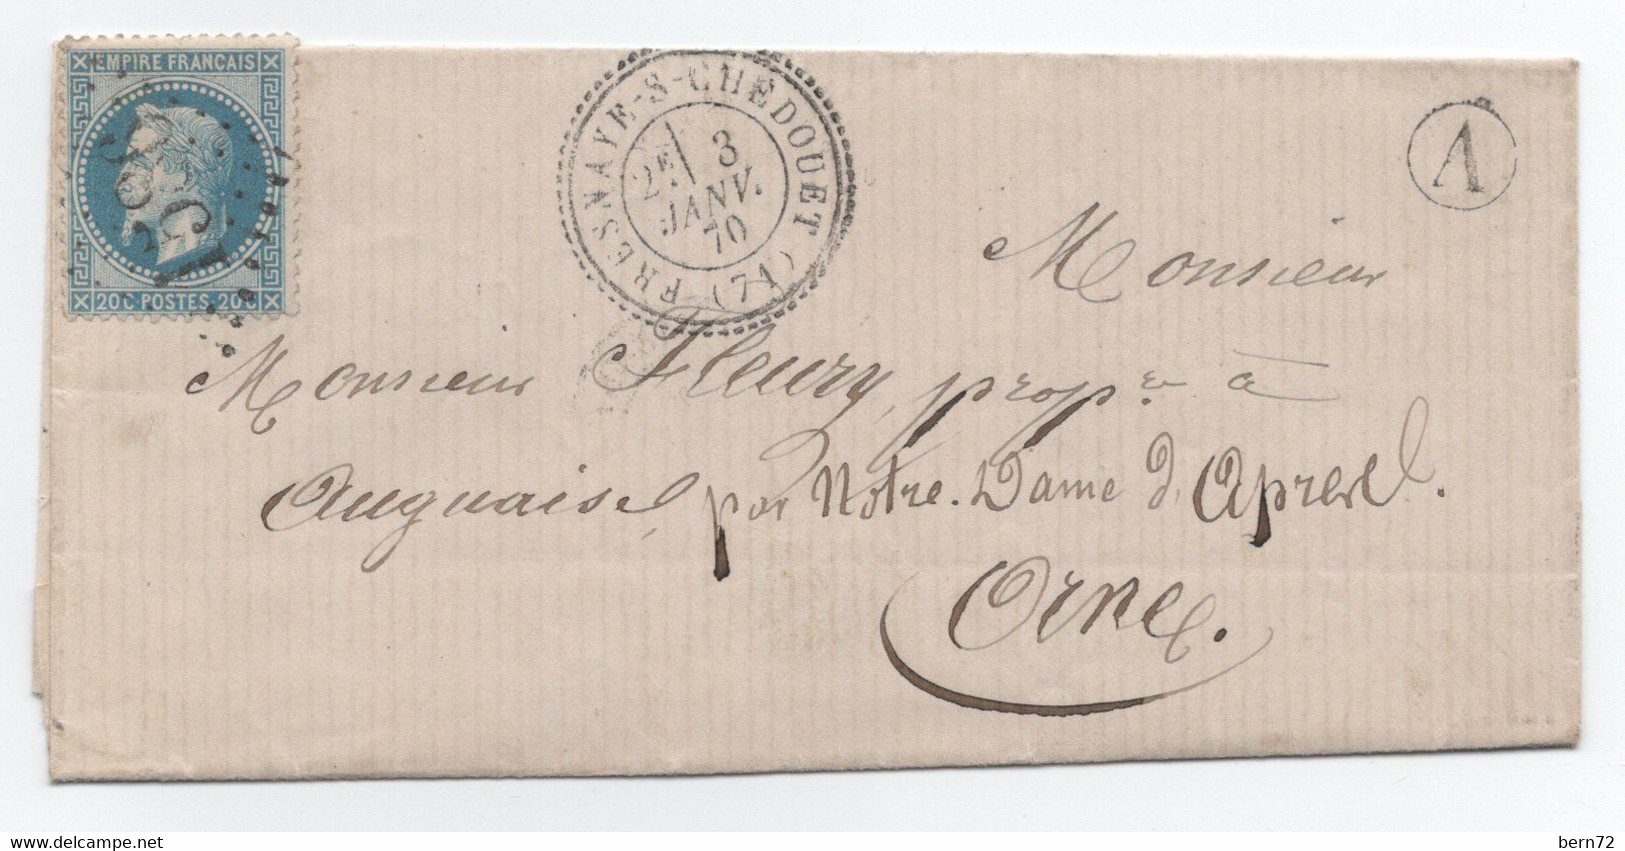 EMPIRE FRANCAIS
20 C POSTES 20 C
FRESNAYE-S-CHÉDOUET (71)
2E 3
JANV.
70
A
Monsieur
Monsieur Fleury, propre à
Auguaise, par Notre-Dame d'Apres.
Orne.
bern72